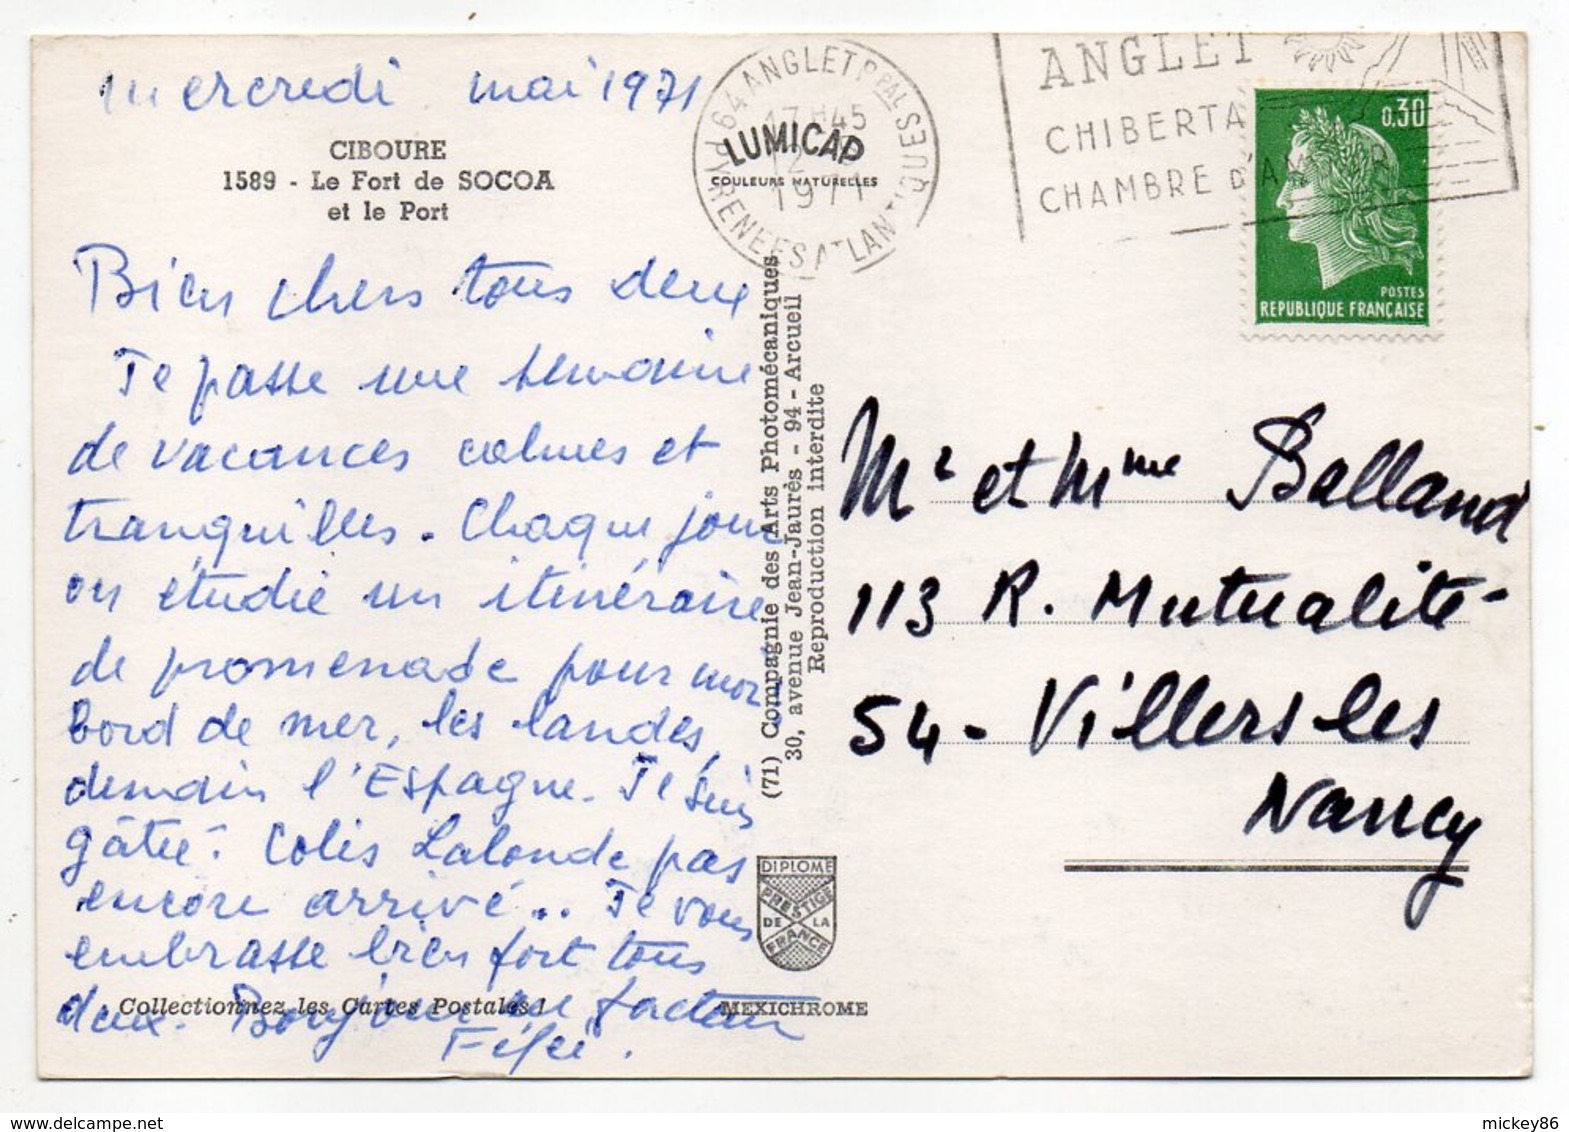 mercredi mai 1971
CIBOURE
1589 - Le Fort de SOCOA
et le Port
Bien chers tous deux
Je passe une semaine
de vacances calmes et
tranquilles. Chaque jour
on étudie un itinéraire
de promenade pour moi
bord de mer, les landes,
demain l'Espagne. Je suis
gâtée. Colis Lalonde pas
encore arrivé.. Je vous
embrasse bien fort tous
deux. Bonjour au facteur
Fifi.
Collectionnez les Cartes Postales !
64 ANGLET PPAL
PYRENEES ATLANTIQUES
17H45
12
1971
LUMICAP
COULEURS NATURELLES
(71) Compagnie des Arts Photomécaniques
30, avenue Jean-Jaurès - 94 - Arcueil
Reproduction interdite
DIPLOME
PRESTIGE
DE LA
FRANCE
MEXICHROME
ANGLET
CHIBERTA
CHAMBRE D'AMOUR
0,30
POSTES
REPUBLIQUE FRANÇAISE
Mr et Mme Balland
113 R. Mutualité
54 - Villers les
Nancy
mickey86